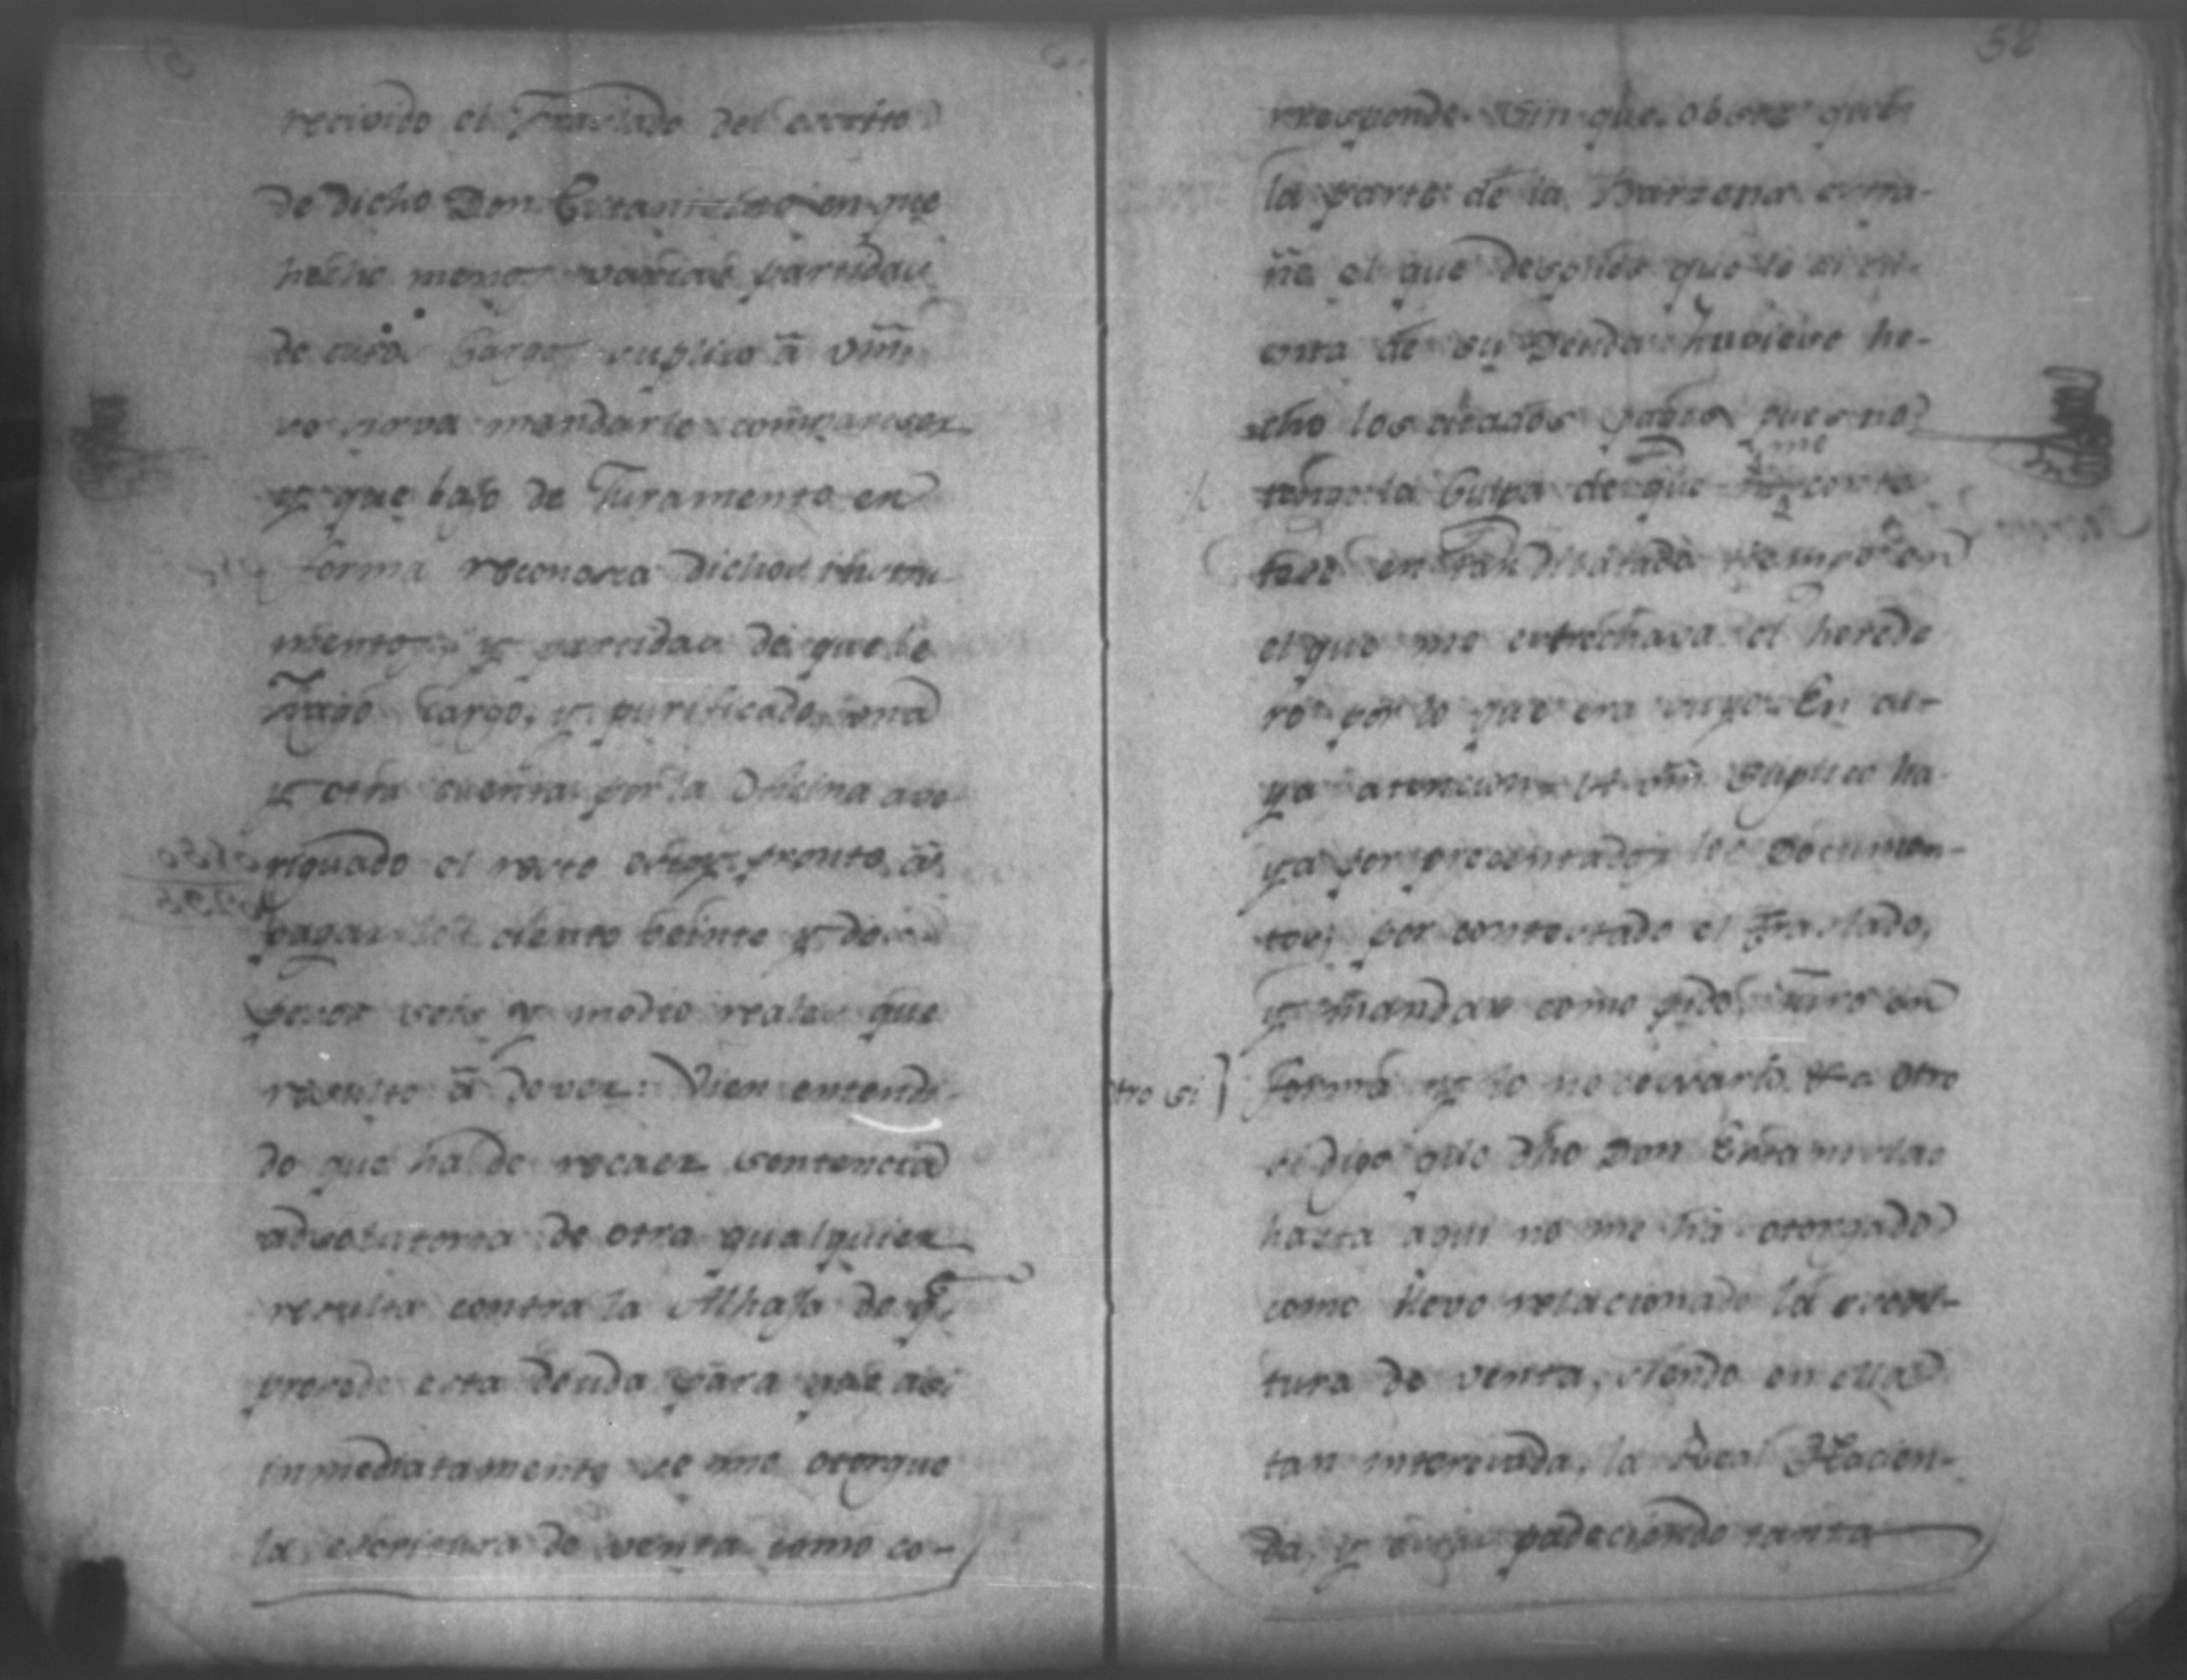 recivido el Traslado del escrito
de dicho Don Estanislao en que
hecho menos varias partidas
de cuio Cargo suplico â Vm̃
se sirva mandarle comparecer
y que bajo de Juramento en
forma reconosca dichos instru
mentos y partidas de que le
hago Cargo, y purificado, una
y otra cuenta por la Oficina ave
riguado el resto estoy pronto, â
pagar los ciento beinte y dos
pesos seis y medio reales que
resulto â dever: Vien entendi-
do que ha de recaer sentencia
adsolutoria de otra qualquier
resulta contra la Alhaja de q.e
procede esta deuda para que asi
inmediatamente se me otorgue
la escriptura de venta como co-
52
rresponde. Sin que obste que
la parte de la Barzena extra-
ñe el que despues que
cuenta de su Deuda huviese he-
cho los citados pagos pues no
tengo la Culpa de que me
en tan dilatado tiempo en
el que me estrechava el herede
ro por lo que era suyo. En cu-
ya atencion = A Vm̃ Suplico ha-
ya por presentados los Documen-
tos, por contestado el Traslado,
y mandar como pido, juro en
Otro si) forma y lo necesario &a Otro
si digo que dho Don Estanislao
hasta aqui no me ha otorgado
como llevo relacionado la escrip-
tura de venta, siendo en ella
tan interesada, la Real Hacien-
da, y padeciendo tanta